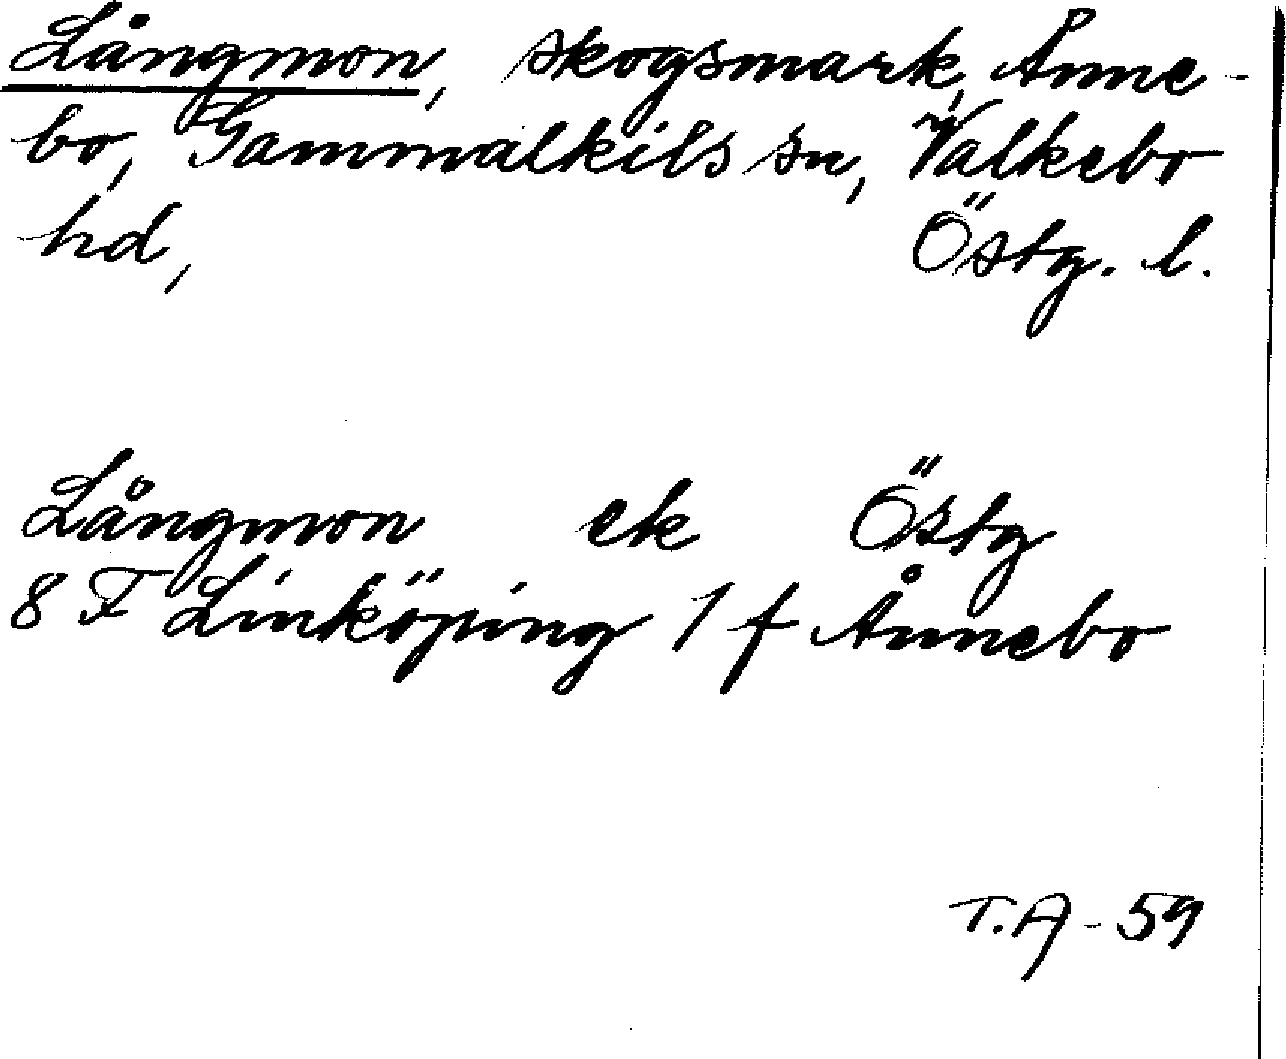 Långmon, skogsmark, Änne-
bo, Gammalkils sn, Valkebo
hd, Östg. l.
Långmon ek Östg
8 F Linköping 1 f Ånnebo
T.A-59